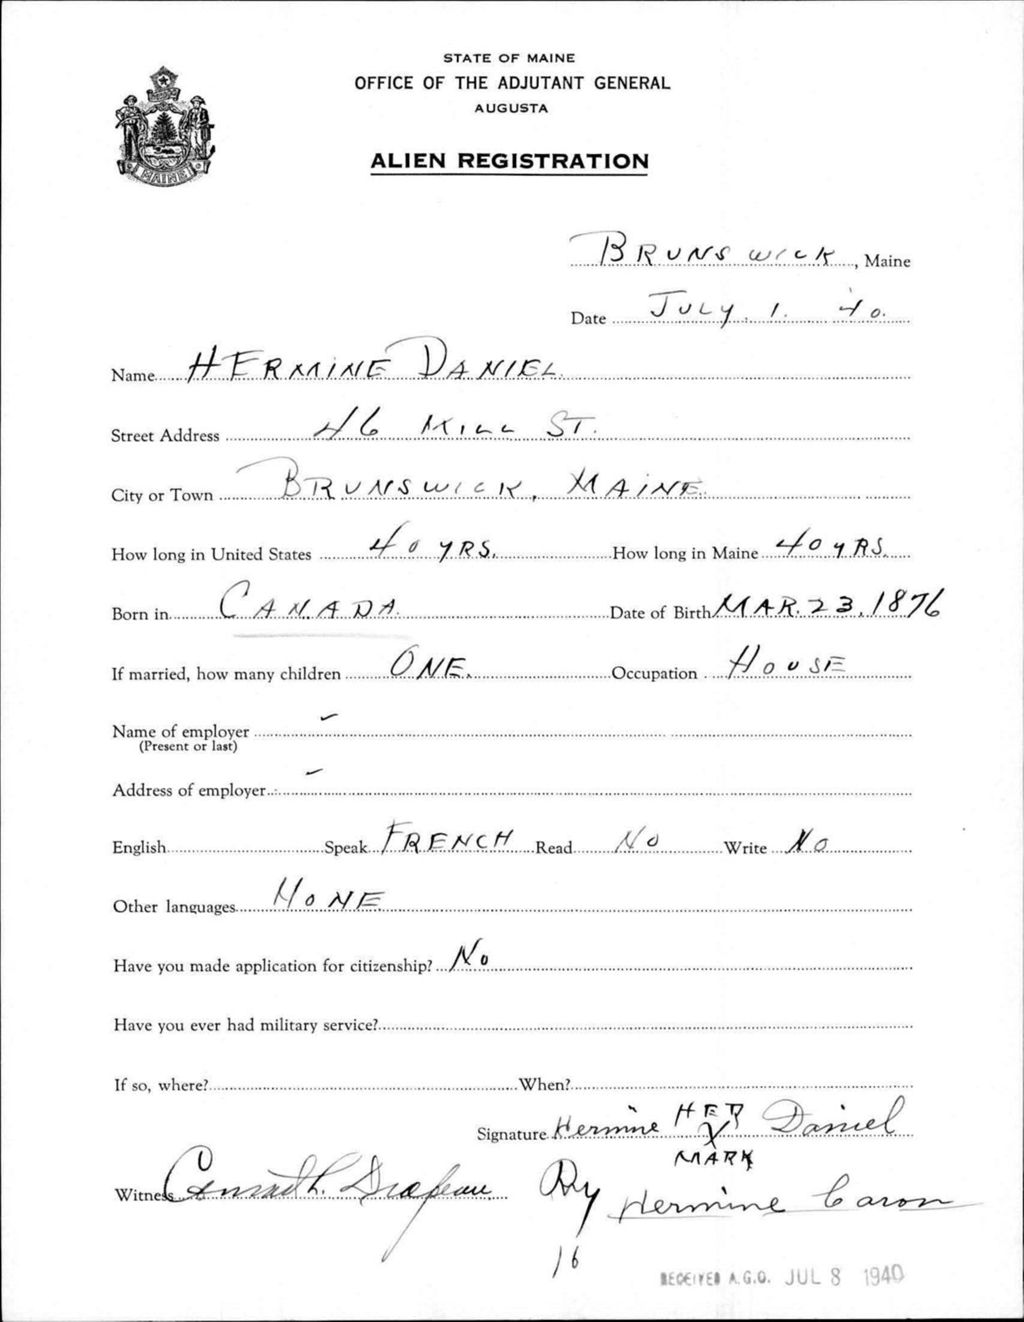 STATE OF MAINE
OFFICE OF THE ADJUTANT GENERAL
AUGUSTA
ALIEN REGISTRATION
MAINE
BRUNSWICK, Maine
Date JULY. 1. '40.
Name HERMINE DANIEL.
Street Address 46 MILL ST.
City or Town BRUNSWICK, MAINE.
How long in United States 40 YRS. How long in Maine 40 YRS.
Born in CANADA. Date of Birth MAR. 23, 1876
If married, how many children ONE. Occupation HOUSE
Name of employer -
(Present or last)
Address of employer -
English Speak FRENCH Read NO Write NO
Other languages NONE
Have you made application for citizenship? NO
Have you ever had military service?
If so, where? When?
Signature Hermine HER X Daniel
MARK
Witness Conrad L. Drapeau By Hermine Caron
16
RECEIVED A.G.O. JUL 8 1940